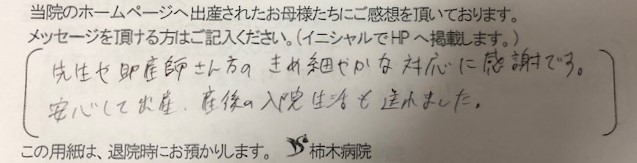 当院のホームページへ出産されたお母様たちにご感想を頂いております。
メッセージを頂ける方はご記入ください。(イニシャルでHPへ掲載します。)
先生や助産師さん方のきめ細やかな対応に感謝です。
安心して出産、産後の入院生活も送れました。
この用紙は、退院時にお預かりします。 柿木病院